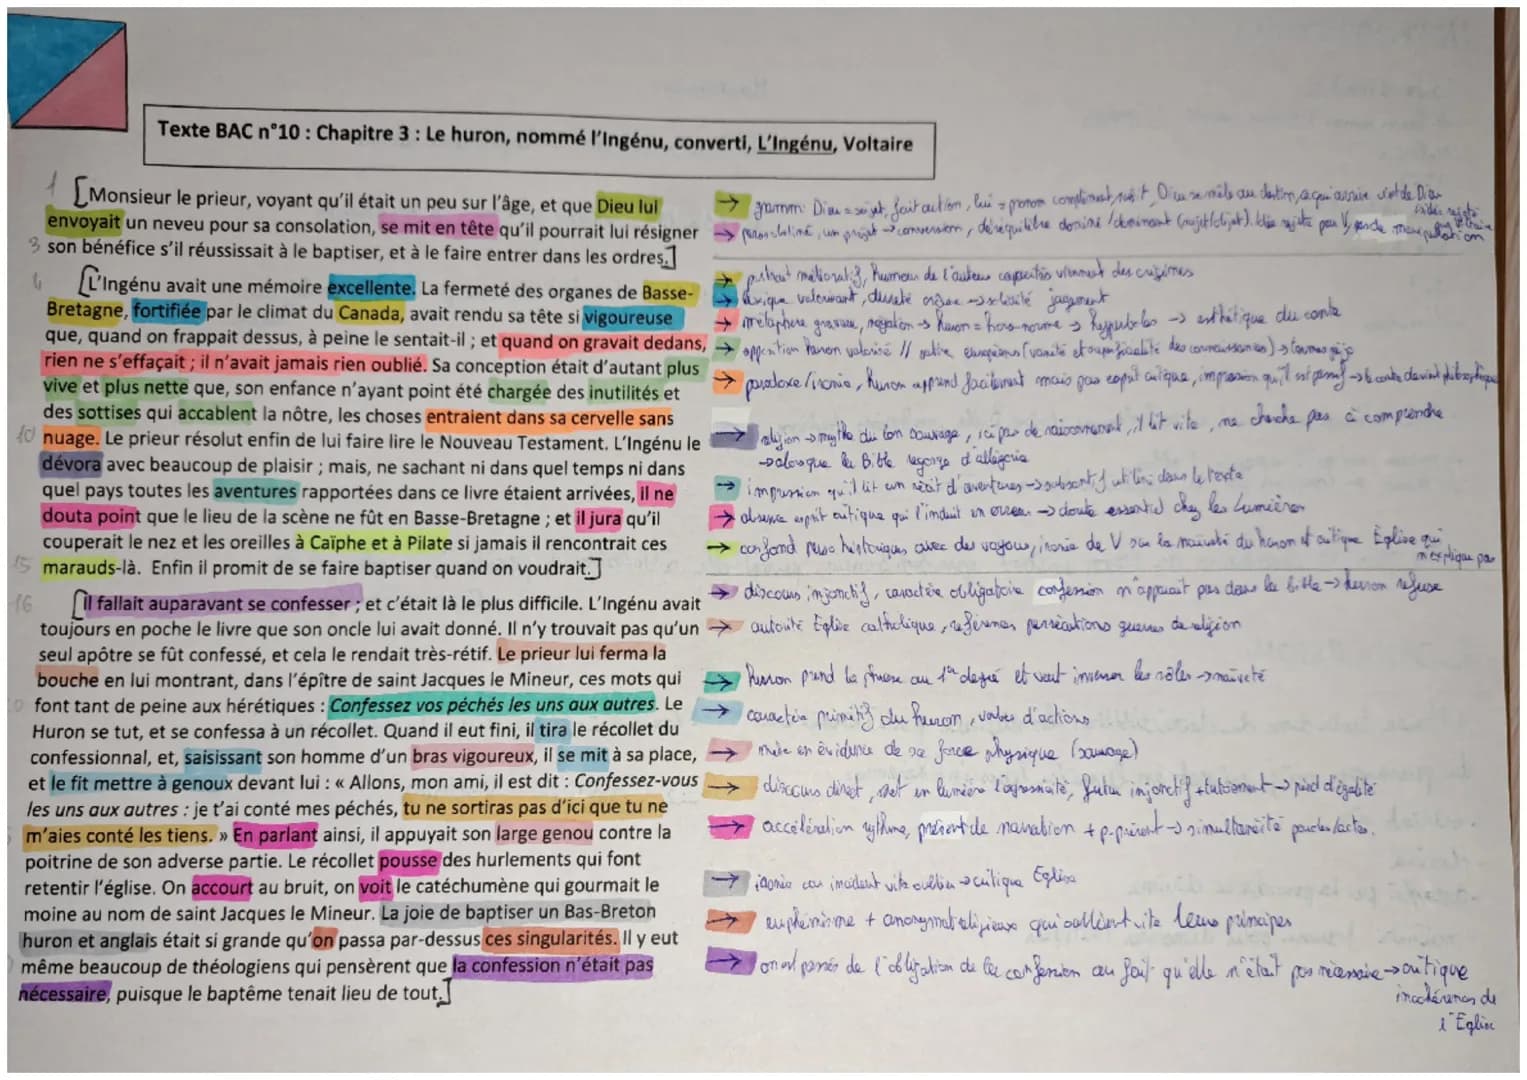 Texte BAC n°10 : Chapitre 3 : Le huron, nommé l'Ingénu, converti, L'Ingénu, Voltaire
1 [Monsieur le prieur, voyant qu'il était un peu sur l'âge, et que Dieu lui
envoyait un neveu pour sa consolation, se mit en tête qu'il pourrait lui résigner
3 son bénéfice s'il réussissait à le baptiser, et à le faire entrer dans les ordres.]
4 [L'Ingénu avait une mémoire excellente. La fermeté des organes de Basse-
Bretagne, fortifiée par le climat du Canada, avait rendu sa tête si vigoureuse
que, quand on frappait dessus, à peine le sentait-il ; et quand on gravait dedans,
rien ne s'effaçait ; il n'avait jamais rien oublié. Sa conception était d'autant plus
vive et plus nette que, son enfance n'ayant point été chargée des inutilités et
des sottises qui accablent la nôtre, les choses entraient dans sa cervelle sans
10 nuage. Le prieur résolut enfin de lui faire lire le Nouveau Testament. L'Ingénu le
dévora avec beaucoup de plaisir ; mais, ne sachant ni dans quel temps ni dans
quel pays toutes les aventures rapportées dans ce livre étaient arrivées, il ne
douta point que le lieu de la scène ne fût en Basse-Bretagne ; et il jura qu'il
couperait le nez et les oreilles à Caïphe et à Pilate si jamais il rencontrait ces
15 marauds-là. Enfin il promit de se faire baptiser quand on voudrait.]
16 [Il fallait auparavant se confesser ; et c'était là le plus difficile. L'Ingénu avait
toujours en poche le livre que son oncle lui avait donné. Il n'y trouvait pas qu'un
seul apôtre se fût confessé, et cela le rendait très-rétif. Le prieur lui ferma la
bouche en lui montrant, dans l'épître de saint Jacques le Mineur, ces mots qui
font tant de peine aux hérétiques : Confessez vos péchés les uns aux autres. Le
Huron se tut, et se confessa à un récollet. Quand il eut fini, il tira le récollet du
confessionnal, et, saisissant son homme d'un bras vigoureux, il se mit à sa place,
et le fit mettre à genoux devant lui : « Allons, mon ami, il est dit : Confessez-vous
les uns aux autres : je t'ai conté mes péchés, tu ne sortiras pas d'ici que tu ne
m'aies conté les tiens. » En parlant ainsi, il appuyait son large genou contre la
poitrine de son adverse partie. Le récollet pousse des hurlements qui font
retentir l'église. On accourt au bruit, on voit le catéchumène qui gourmait le
moine au nom de saint Jacques le Mineur. La joie de baptiser un Bas-Breton
huron et anglais était si grande qu'on passa par-dessus ces singularités. Il y eut
même beaucoup de théologiens qui pensèrent que la confession n'était pas
nécessaire, puisque le baptême tenait lieu de tout.]
→ gramm: Dieu = sujet, fait action, lui = pronom complément, subit, Dieu se mêle au destin, ce qui arrive vient de Dieu
→ possibilité, un projet → conversion, déséquilibre dominé/dominant (sujet/objet).
→ portrait mélioratif, humour de l'auteur capacités viennent des origines
→ lexique valorisant, dureté → solidité jugement
→ métaphore gravure, négation → huron = hors-norme → hyperboles → esthétique du conte
→ opposition huron valorisé // satire européens (vanité et superficialité des connaissances)
→ paradoxe/ironie, huron apprend facilement mais pas esprit critique, impression qu'il est passif → le conte devient philosophique
→ religion → mythe du bon sauvage, ici pas de raisonnement, il lit vite, ne cherche pas à comprendre
→ alors que la Bible regorge d'allégorie
→ impression qu'il lit un récit d'aventures → substantif utilisé dans le texte
→ absence esprit critique qui l'induit en erreur → doute essentiel chez les Lumières
→ confond perso historiques avec des voyous, ironie de V sur la naïveté du huron et critique Église qui
n'explique pas
→ discours injonctif, caractère obligatoire confession n'apparait pas dans la bible → huron refuse
→ autorité Église catholique, références persécutions guerres de religion
→ Huron prend la phrase au 1er degré et veut inverser les rôles → naïveté
→ caractère primitif du huron, verbes d'actions
→ mise en évidence de sa force physique (sauvage)
→ discours direct, met en lumière l'agressivité, futur injonctif + tutoiement → pied d'égalité
→ accélération rythme, présent de narration + p.présent → simultanéité paroles/actes.
→ ironie car incident vite oublié → critique Église
→ euphémisme + anonymat religieux qui oublient vite leurs principes
→ on est passés de l'obligation de la confession au fait qu'elle n'était pas nécessaire → critique
incohérences de
l'Église